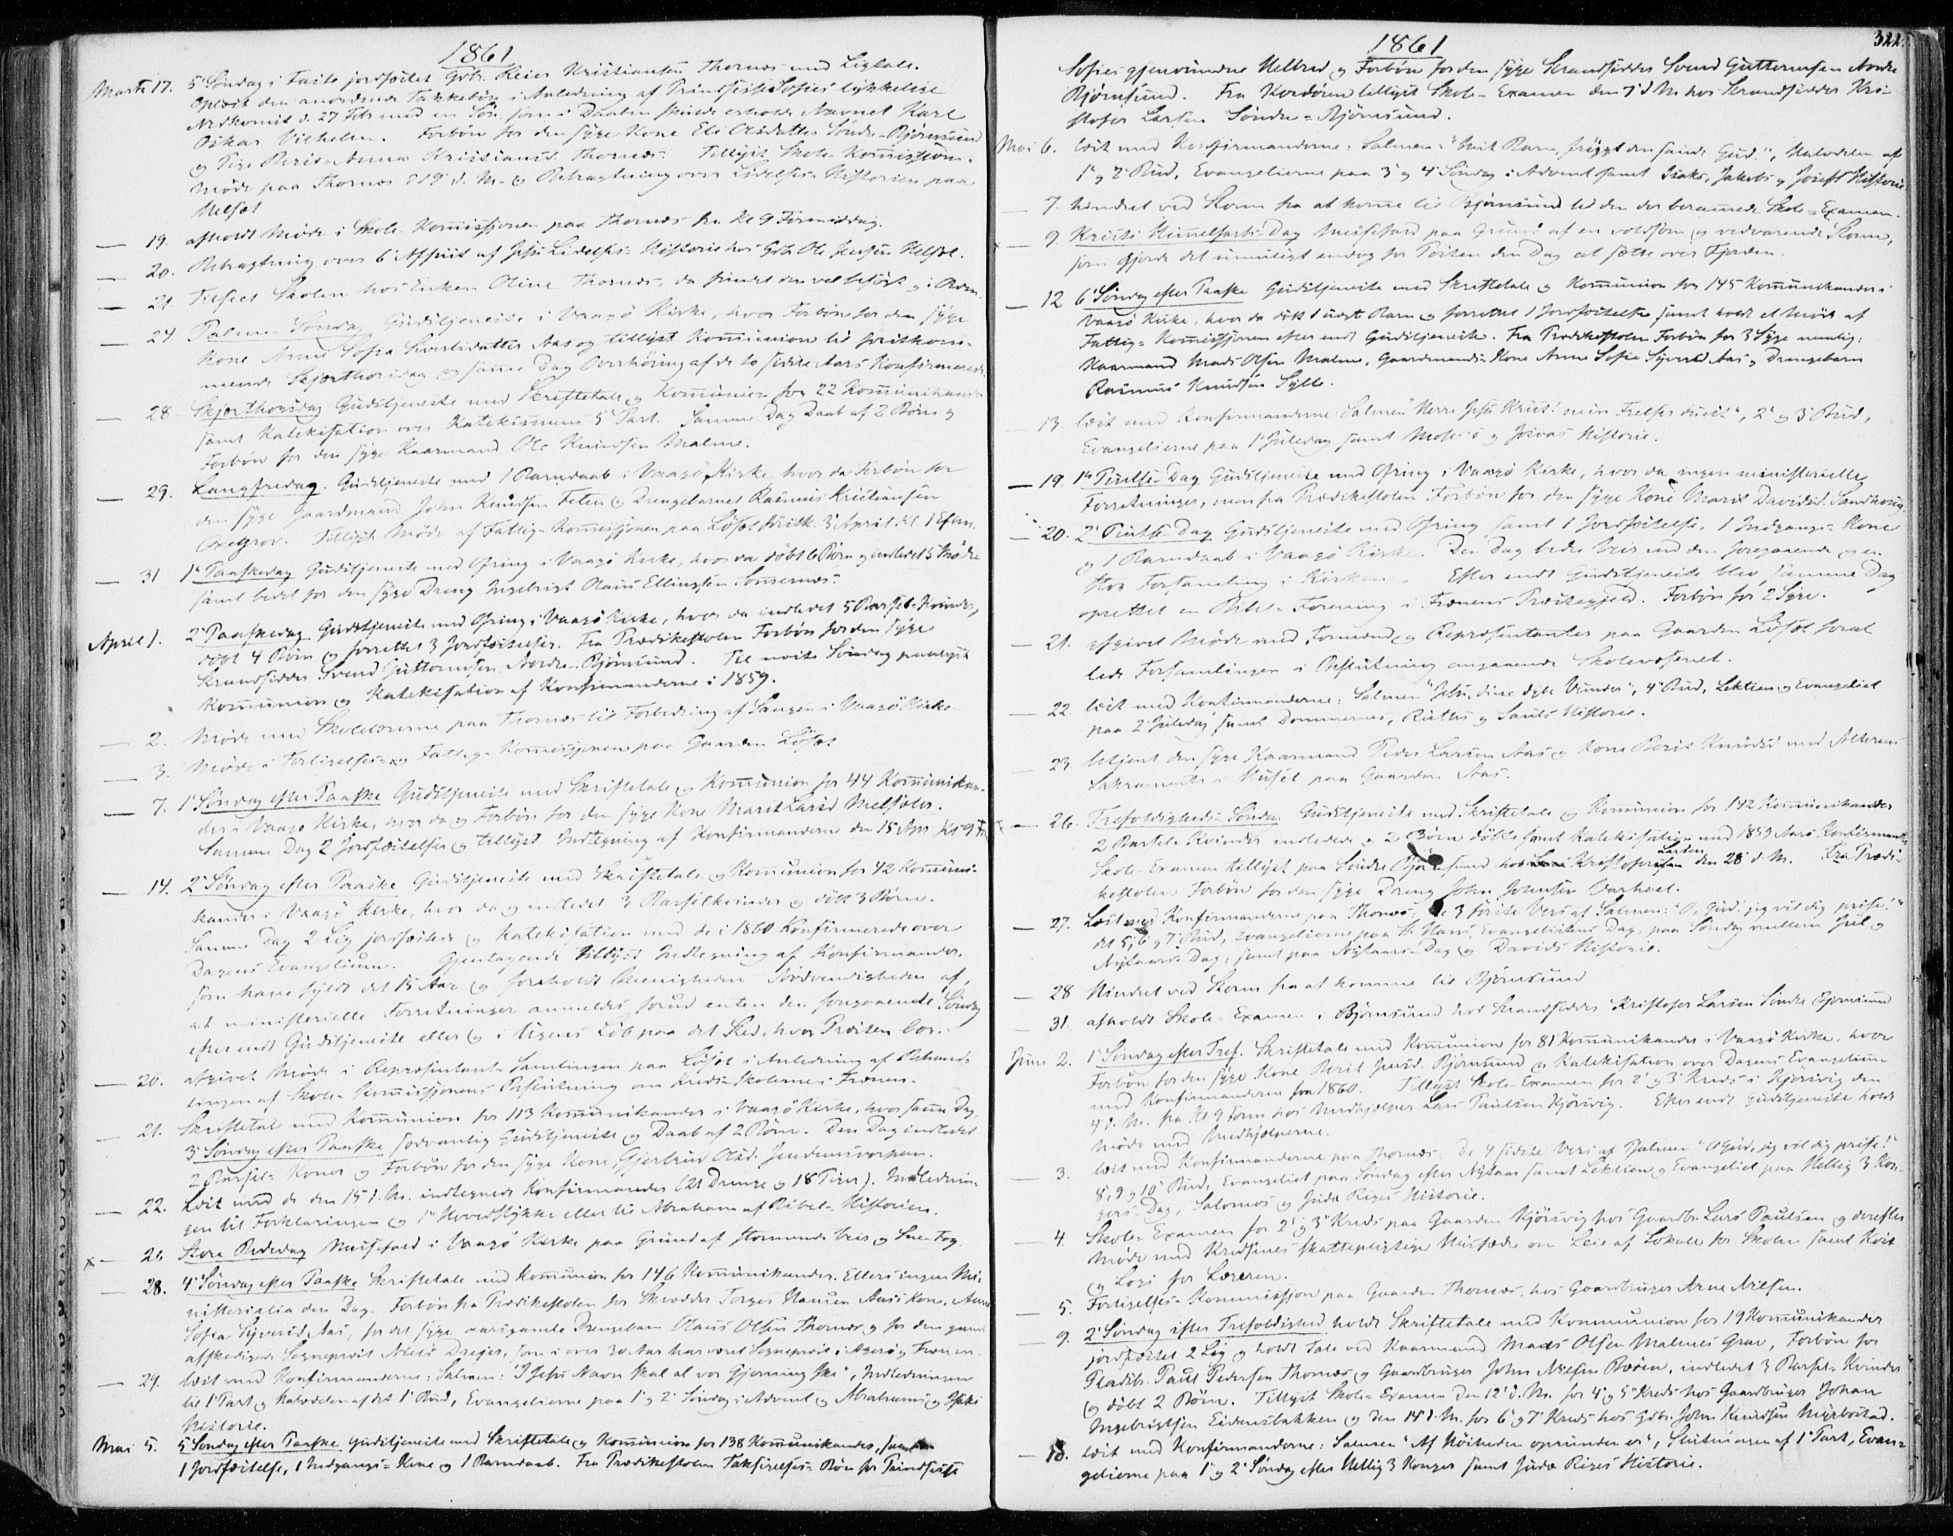 1861
Marts 17. 5' Søndag i Faste jordfæstet Gdb. Reier Kristiansen Thornæs med Ligtale.
Oplæst den anordnede Takkebøn i Anledning af Prindsesse Sofies lykkelige
Nedkomst d. 27 Febr med en Søn, som i Daaben skulde erholde Navnet Karl
Oskar Vilhelm. Forbøn for den syge Kone Eli Olsdatter Søndre-Bjørnsund
og Pige Berit-Anna Kristiansd. Thornæs. Tillyst Skole-Kommissions-
Møde paa Thornæs d 19' d. M. og Betragtning over Lidelses-Historien paa
Melsæt
— 19. afholdt Møde i Skole-Kommissjonen paa Thornæs fra Kl 9 Formiddag.
— 20. Betragtning over 6' Afsnit af Jesu Lidelses-Historie hos Gdb. Ole Jensen Melsæt.
— 21 Tilseet Skolen hos Enken Oline Thornæs, da fundet den vel besøgt og i Orden.
— 24 Palme-Søndag Gudstjeneste i Vaagø Kirke, hvor Forbøn for den syge
Kone Anne Sofia Siverdsdatter Aas og tillyst Kommunion til førstkom-
mende Skjærthorsdag og samme Dag Overhøring af de to sidste Aars Konfirmerede.
— 28. Skjærthorsdag Gudstjeneste med Skriftetale og Kommunion for 22 Kommunikander
samt Katekisation over Katekismens 5' Part. Samme Dag Daab af 2 Børn og
Forbøn for den syge Kaarmand Ole Knudsen Malme.
— 29. Langfredag. Gudstjeneste med 1 Barndaab i Vaagø Kirke, hvor da Forbøn for
den syge Gaardmand John Knudsen Teten og Drengebarnet Rasmus Kristiansen
Tillyst Møde af Fattig-Kommissjonen paa Løset førstk. 3' April kl. 1 Efterm.
— 31 1' Paaskedag Gudstjeneste med Ofring i Vaagø Kirke, hvor da døbt 6 Børn og indledet 3 Mødre
samt bedet for den syge Dreng Ingebrigt Olaus Ellingsen
April 1. 2' Paaskedag Gudstjeneste med Ofring i Vaagø Kirke, hvor da indledet 5 Barsel-Kvinder,
døbt 4 Børn og forrettet 3 Jordfæstelser. Fra Prædikestolen Forbøn for den syge
Strandsidder Svend Guttormsen Nordre-Bjørnsund. Til næste Søndag paalyst
Kommunion og Katekisation af Konfirmanderne i 1859.
— 2. Møde med Skolelærerne paa Thornæs til Forbedring af Sangen i Vaagø Kirke
— 3. Møde i Forligelses- og Fattig-Kommissjonen paa Gaarden Løset
— 7. 1' Søndag efter Paaske Gudstjeneste med Skriftetale og Kommunion for 44 Kommunikan-
der i Vaagø Kirke, hvor da og Forbøn for den syge Kone Marit Larsd Melsæter.
Samme Dag 2 Jordfæstelser og tillyst Indtegning af Konfirmanderne den 15 Apr Kl 9 Fm
— 14. 2' Søndag efter Paaske Gudstjeneste med Skriftetale og Kommunion for 42 Kommuni-
kander i Vaagø Kirke, hvor da og indledet 3 Barselkvinder og døbt 3 Børn.
Samme Dag 2 Lig jordfæstede og Katekisation med de i 1860 Konfirmerede over
Dagens Evangelium. Gjentagende tillyst Indtegning af Konfirmander,
som have fyldt det 15 Aar og foreholdt Menigheden Nødvendigheden af,
at ministerielle Forretninger anmeldes forud enten den foregaaende Søndag
efter endt Gudstjeneste eller og i Ugens Løb paa det Sted, hvor Præsten bor.
— 20. afgivet Møde i Repræsentant-Samlingen paa Løset i Anledning af Behand-
lingen af Skole-Kommissjonens Beslutning om Kreds-Skolerne i Frænen.
— 21. Skriftetale med Kommunion for 113 Kommunikander i Vaagø Kirke, hvor samme Dag,
3' Søndag efter Paaske sædvanlig Gudstjeneste og Daab af 2 Børn. Den Dag indledet
2 Barsel-Koner og Forbøn for den syge Kone Gjertrud Olsd.
— 22. Læst med de den 15 d. M. indtegnede Konfirmander (21 Drenge og 18 Piger). Indlednin-
gen til Forklaringen og 1' Hovedstykke eller til Abraham af Bibel-Historien.
x — 26 Store Bededag Messefald i Vaagø Kirke paa Grund af stormende Veir og Sne-Fog
— 28. 4' Søndag efter Paaske Skriftetale med Kommunion for 146 Kommunikander. Ellers ingen Mi-
nisterialia den Dag. Forbøn fra Prædikestolen for Skrædder Torger Hansen Aas's Kone, Anne
Sofia Syversd. Aas, for det syge aarsgamle Drengebarn Olaus Olsen Thornæs og for den gamle
afskedigede Sogneprest Dreyer, som i over 30 Aar har været Sogneprest i Agerø og Frænen.
— 29. læst med Konfirmanderne: Salmen: "I Jesu Navn skal al vor Gjerning ske", Indledningen
til 1' Part og Halvdelen af det 1' Bud, Evangelierne paa 1' og 2' Søndag i Advent og Abrahams og Isaks
Historie.
Mai 5. 5' Søndag efter Paaske Gudstjeneste med Skriftetale og Kommunion for 138 Kommunikander, samt
1 Jordfæstelse, 1 Indgangs-Kone og 1 Barndaab. Fra Prædikestolen Taksigelses-Bøn for Prindsesse
1861
322.
Sofies gjenvundne Helbred og Forbøn for den syge Strandsidder Svend Guttormsen Nordre
Bjørnsund. Fra Kordøren tillyst Skole-Examen den 7' d. M. hos Strandsidder Kri-
stofer Larsen Søndre-Bjørnsund.
Mai 6. læst med Konfirmanderne: Salmen: "Mit Barn, frygt den sande Gud", Halvdelen af
1' og 2' Bud, Evangelierne paa 3' og 4' Søndag i Advent samt Isaks, Jakobs og Josefs Historie.
— 7. hindret ved Storm fra at komme til Bjørnsund til den der berammede Skole-Examen.
x — 9. Kristi Himmelfarts-Dag Messefald paa Grund af en voldsom og vedvarende Storm,
som gjorde det umuligt endog for Posten den Dag at sætte over Fjorden.
— 12 6' Søndag efter Paaske Gudstjeneste med Skriftetale og Kommunion for 145 Kommunikander i
Vaagø Kirke, hvor da døbt 1 uægte Barn og forrettet 1 Jordfæstelse samt holdt et Møde af
Fattig-Kommissjonen efter endt Gudstjeneste. Fra Prædikestolen Forbøn for 3 Syge nemlig:
Kaarmand Mads Olsen Malme, Gaardmands-Kone Anne Sofie Syversd Aas og Drengebarn
Rasmus Knudsen Sylte.
— 13. læst med Konfirmanderne Salmen "Herre Jesu Krist! min Frelser du est", 2' og 3' Bud,
Evangelierne paa 1' Juledag samt Moses's og Josvas Historie.
— 19. 1ste Pintse-Dag Gudstjeneste med Ofring i Vaagø Kirke, hvor da ingen ministerielle
Forretninger, men fra Prædikestolen Forbøn for den syge Kone Marit Davidsd.
— 20. 2' Pintse-Dag Gudstjeneste med Ofring samt 1 Jordfæstelse, 1 Indgangs-Kone
og 1 Barndaab i Vaagø Kirke. Den Dag bedre Veir end den foregaaende og en
stor Forsamling i Kirken. Efter endt Gudstjeneste blev samme Dag
oprettet en Bibel-Forening i Frænens Præstegjeld. Forbøn for 2 Syge.
— 21. afgivet Møde med Formænd og Repræsentanter paa Gaarden Løset foral
lede Forhandlingen i Beslutning angaaende Skolevæsenet.
— 22. læst med Konfirmanderne: Salmen "Jesu, dine dybe Vunder", 4' Bud, Lektien og Evangeliet
paa 2' Juledag samt Dommernes, Ruths og Sauls Historie.
— 23 betjent den syge Kaarmand Peder Larsen Aas og Kone Berit Knudsd med Alterens
Sakramente i Huset paa Gaarden Aas.
x — 26. Trefoldigheds-Søndag Gudstjeneste med Skriftetale og Kommunion for 142 Kommunikander
2 Barsel-Kvinder indledede og 2 Børn døbte samt Katekisation med 1859 Aars Konfirmander
Skole-Examen tillyst paa Søndre Bjørnsund hos Kristofer Larsen den 28' d. M. Fra Prædi-
kestolen Forbøn for den syge Dreng John Johnsen Varhoel.
— 27. Læst med Konfirmanderne paa Thornæs: de 3 første Vers af Salmen: "O, Gud! jeg vil dig prise!"
det 5, 6 og 7' Bud, Evangelierne paa St. Hans Evangelistens Dag, paa Søndag mellem Jul og
Nytaars-Dag, samt paa Nytaars-Dag og Davids Historie.
— 28 Hindret ved Storm fra at komme til Bjørnsund
— 31. afholdt Skole-Examen i Bjørnsund hos Strandsidder Kristofer Larsen Søndre Bjørnsund
Juni 2. 1' Søndag efter Tref. Skriftetale med Kommunion for 81 Kommunikander i Vaagø Kirke, hvor
Forbøn for den syge Kone Berit Bjørnsund og Katekisation over Dagens Evangelium
med Konfirmanderne fra 1860. Tillyst Skole-Examen for 2' og 3' Kreds i Kjørsvig den
4' d. M. fra Kl 9 Form hos Medhjælper Lars Paulsen Kjørsvig. Efter endt Gudstjeneste holdt
Møde med Medhjælperne.
— 3. læst med Konfirmanderne paa Thornæs: De 4 sidste Vers af Psalmen "O Gud, jeg vil dig prise!"
8', 9' og 10' Bud, Evangeliet paa Søndag efter Nytaar samt Lektien og Evangeliet paa Hellig 3 Kon-
gers-Dag, Salomos og Juda Riges Historie.
— 4. Skole-Examen for 2' og 3' Kreds paa Gaarden Kjørsvig hos Gaardbr. Lars Paulsen og derefter
Møde med Kredsenes skattepligtige Husfædre om Leie af Lokale for Skolen samt Kost
og Logi for Læreren.
— 5. Forligelses-Kommissjon paa Gaarden Thornæs hos Gaardbruger Arne Nielsen.
— 9. 2' Søndag efter Trefoldighed holdt Skriftetale med Kommunion for 19 Kommunikander
jordfæstet 2 Lig og holdt Tale ved Kaarmand Mads Olsen Malmes Grav, Forbøn for
Pladsb. Paul Pedersen Thornæs og Gaardbruger John Nielsen, indledet 3 Barsel-Kvinder
og døbt 2 Børn. Tillyst Skole-Examen Den 12' d. M. for 4' og 5' Kreds hos Gaardbruger Johan
Ingebrigtsen Eidemsbakken og den 14' d. M. for 6' og 7' Kreds hos Gdbr. John Knudsen Myrbostad.
— 10. læst med Konfirmanderne: Salmen "Af Høiheden oprunden er", Slutningen af 1' Part, Evan-
gelierne paa 1' og 2' Søndag efter Hellig 3 Konger samt Juda Riges Historie.